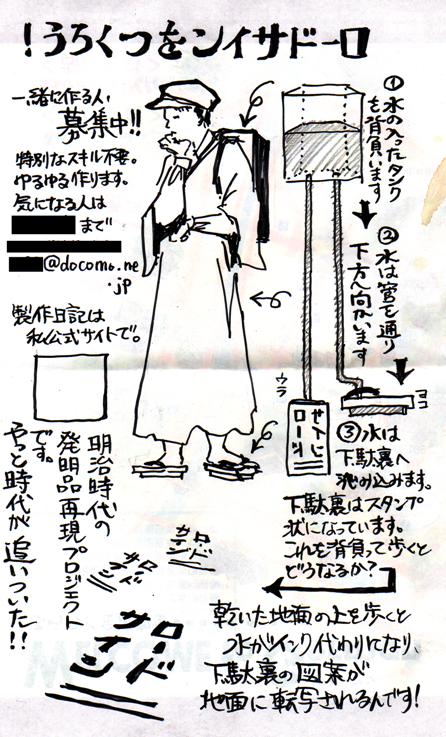 ロードサインをつくろう！
一緒に作る人
募集中!!
特別なスキル不要。
ゆるゆる作ります。
気になる人は
まで
@docomo.ne
.jp
製作日記は
私公式サイトで。
①水の入ったタンク
を背負います
②水は管を通り
下方へ向かいます
ウラ
ヨコ
③水は
下駄裏へ
流み込みます。
下駄裏はスタンプ
状になっています。
これを背負って歩くと
どうなるか？
乾いた地面の上を歩くと
水がインク代わりになり、
下駄裏の図案が
地面に転写されるんです！
ロード
サイン
ロード
サイン
ロード
サイン
明治時代の
発明品再現プロジェクト
です。
やっと時代が追いついた!!